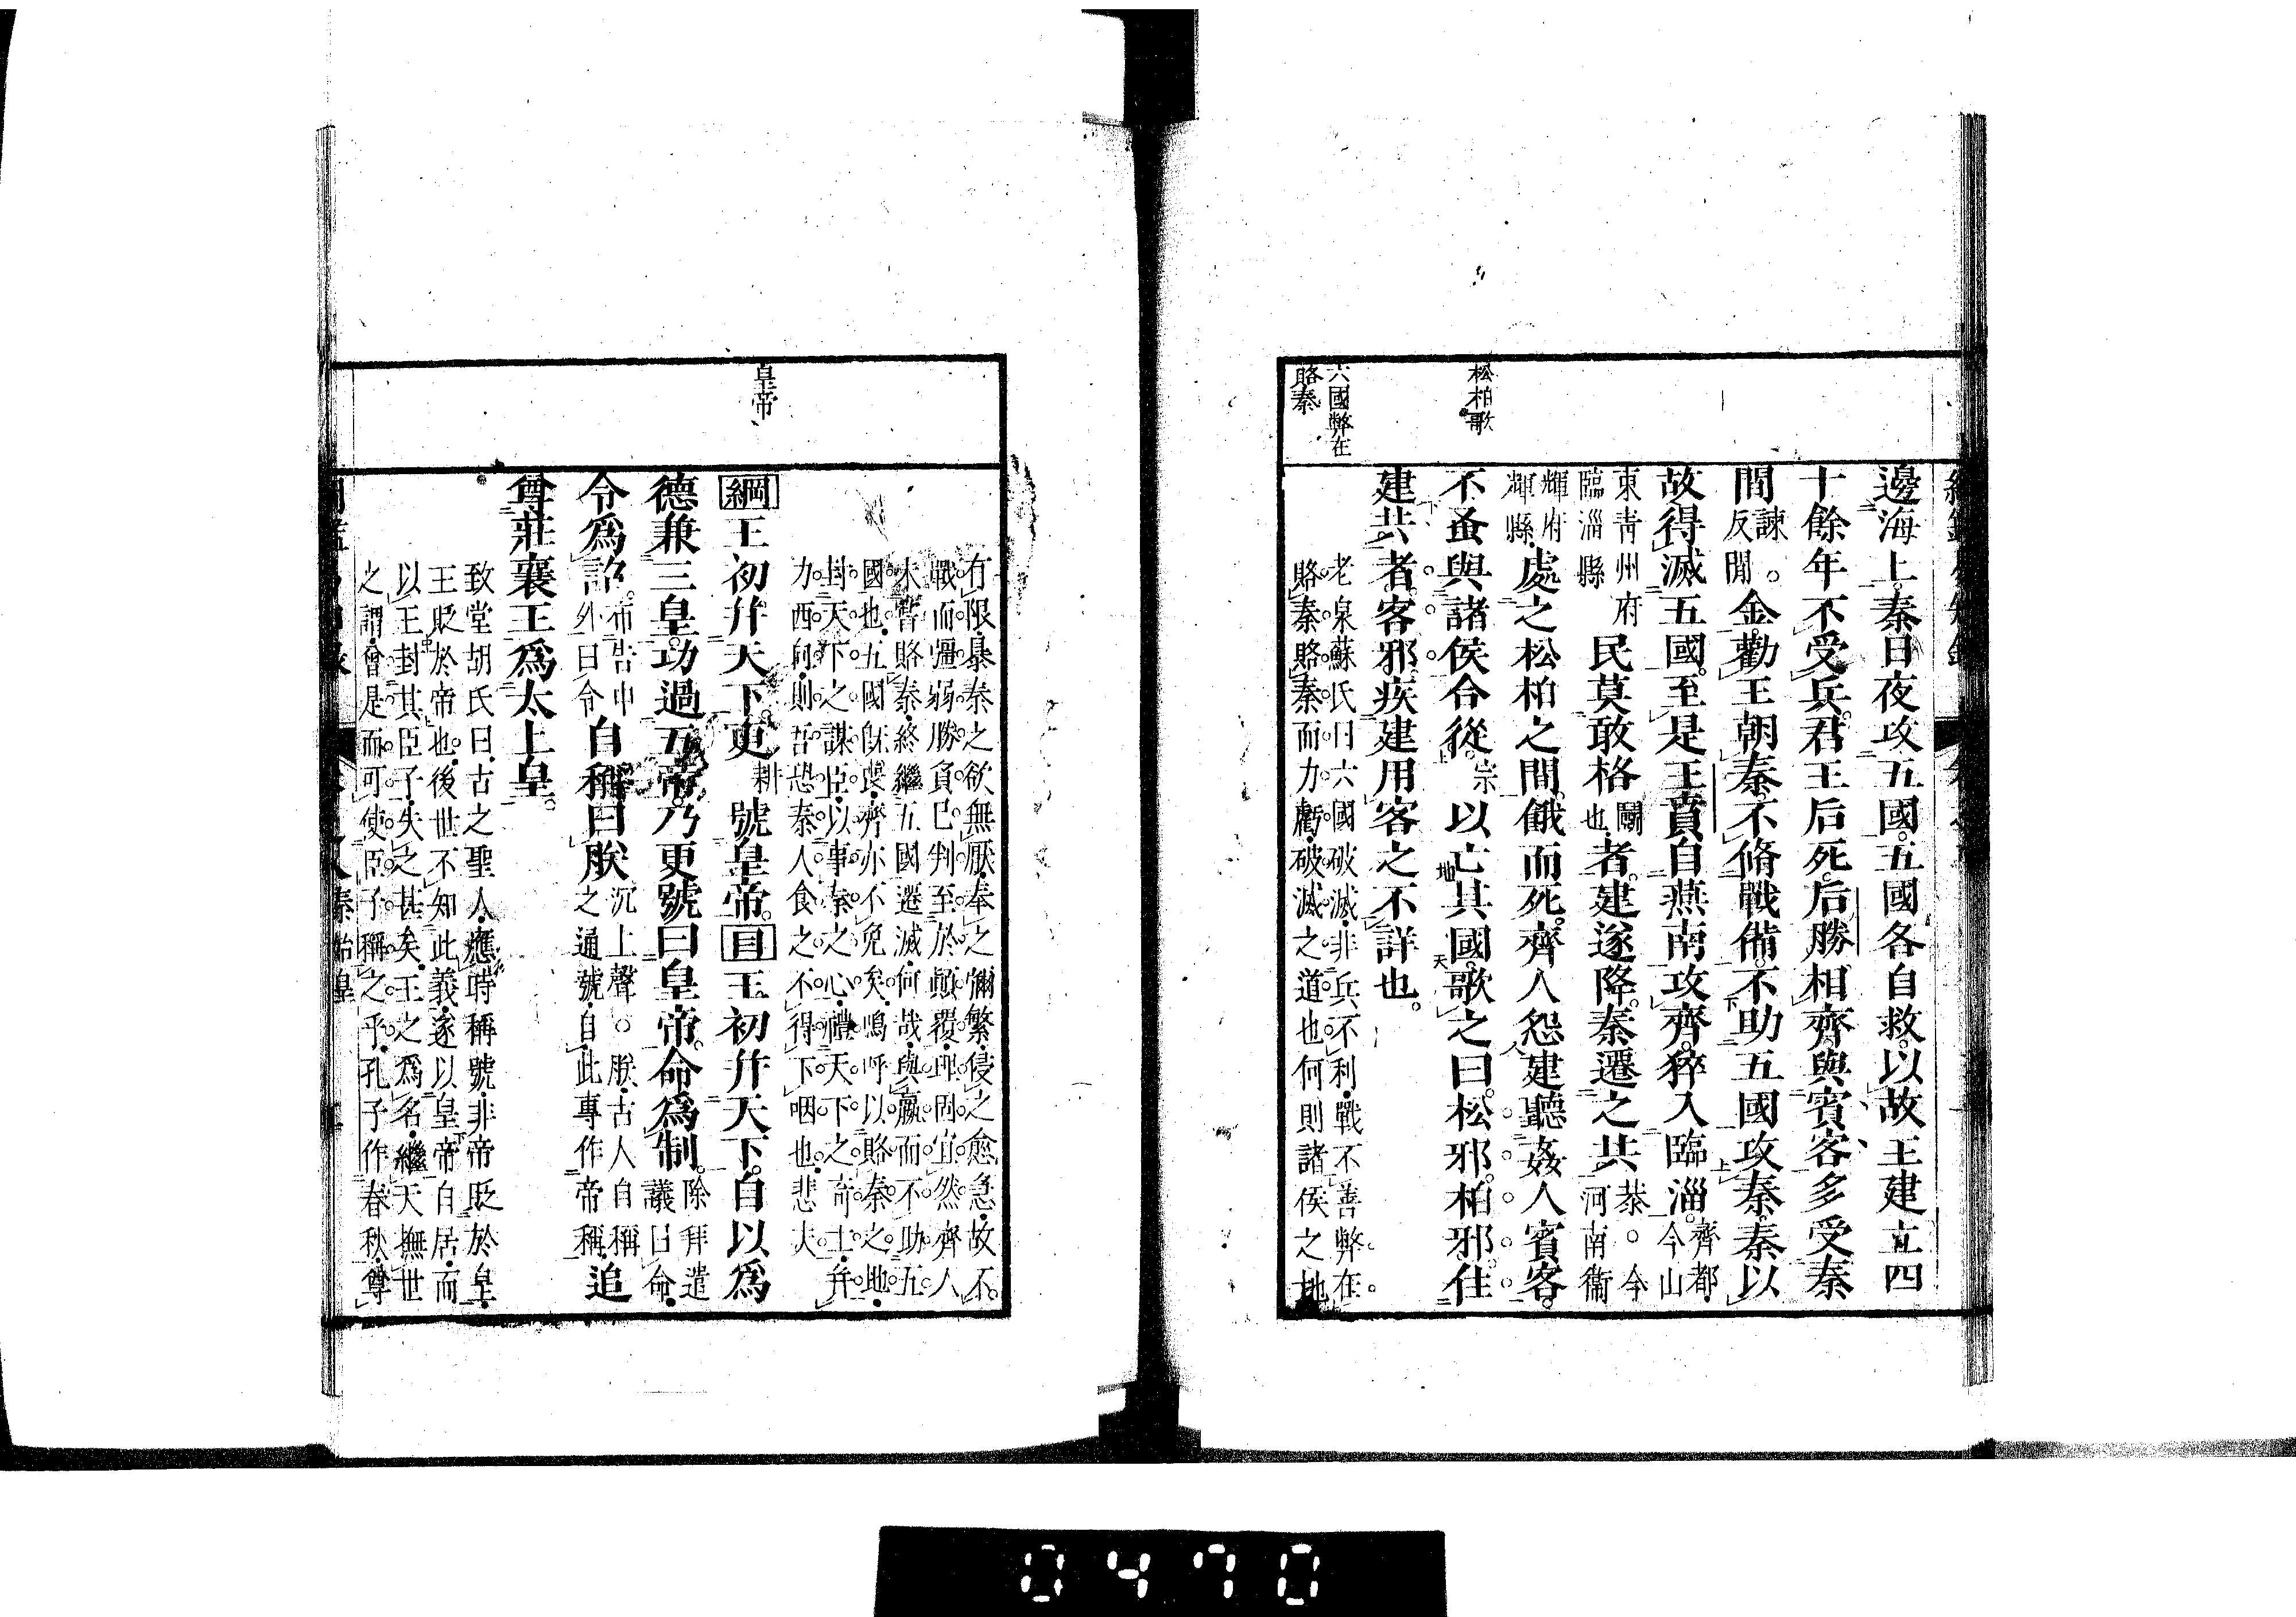 邊海上秦日夜攻五國五國各自救以故王建立四
十餘年不受兵君王后死后勝相齊與賓客多受秦
間諫反間。金勸王朝秦不脩戰備不助五國攻秦秦以
故得滅五國至是王賁自燕南攻齊猝入臨淄齊都今山
東青州府臨淄縣民莫敢格鬭也者建遂降秦遷之共恭。今河南衞
輝府輝縣處之松柏之間餓而死齊人怨建聽姦人賓客
不蚤與諸侯合從宗以亡其國歌之曰松邪柏邪住
建共者客邪疾建用客之不詳也
老泉蘇氏曰六國破滅非兵不利戰不善弊在
賂秦賂秦而力虧破滅之道也何則諸侯之地
松柏歌
六國弊在
賂秦
有限暴秦之欲無厭奉之彌繁侵之愈急故不
戰而彊弱勝負已判至於顛覆理固宜然齊人
未嘗賂秦終繼五國遷滅何哉與嬴而不助五
國也五國既喪齊亦不免矣嗚呼以賂秦之地
封天下之謀臣以事秦之心禮天下之奇士并
力西向則吾恐秦人食之不得下咽也悲夫
綱王初幷天下更耕號皇帝目王初幷天下自以爲
德兼三皇功過五帝乃更號曰皇帝命爲制除拜遣議曰命
令爲詔布告中外曰令自稱曰朕沉上聲。朕古人自稱之通號自此專作帝稱追
尊莊襄王爲太上皇
致堂胡氏曰古之聖人應時稱號非帝貶於皇
王貶於帝也後世不知此義遂以皇帝自居而
以王封其臣子失之甚矣王之爲名繼天撫世
之謂曾是而可使臣子稱之乎孔子作春秋尊
皇帝
秦始皇
0470